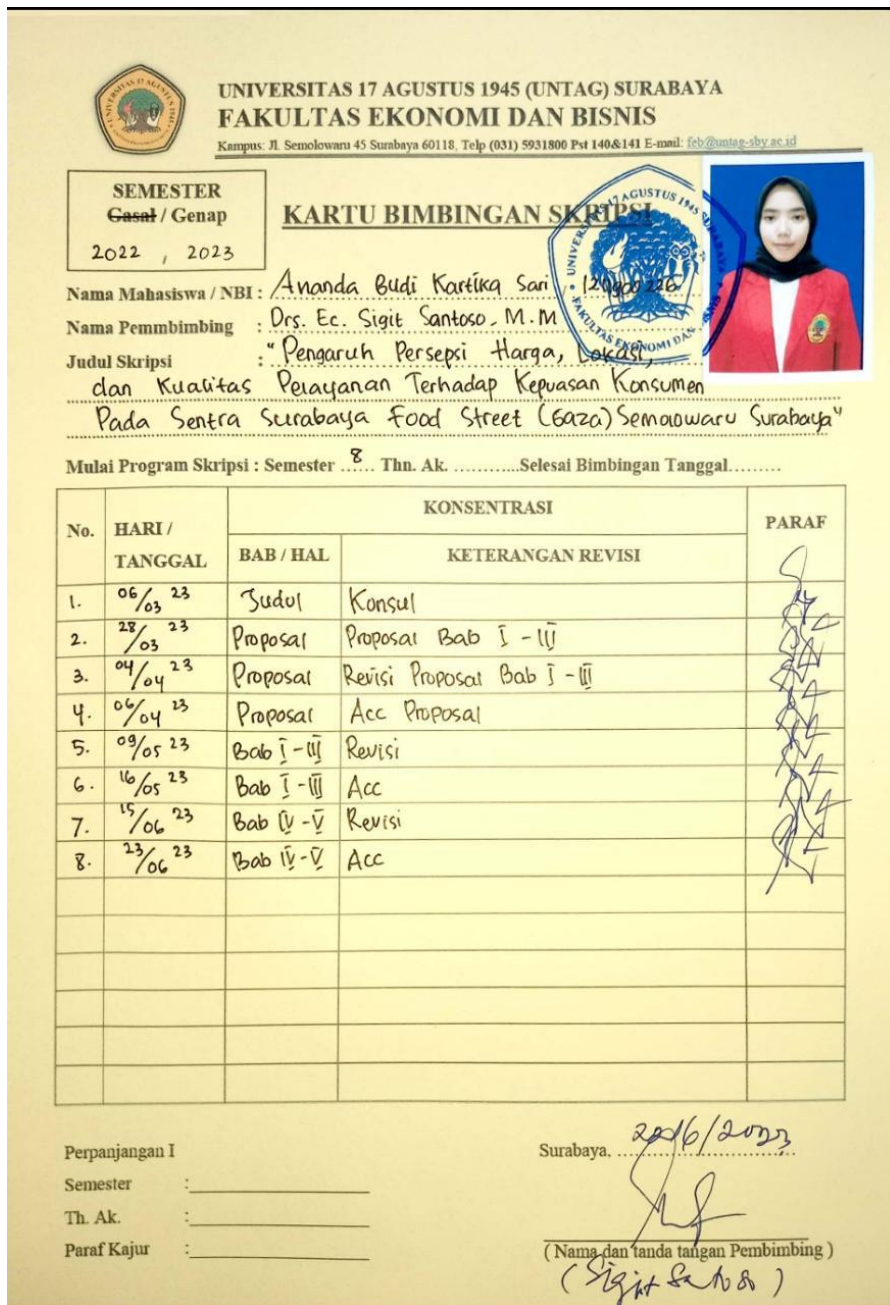 UNIVERSITAS 17 AGUSTUS 1945 (UNTAG) SURABAYA
FAKULTAS EKONOMI DAN BISNIS
Kampus: Jl. Semolowaru 45 Surabaya 60118, Telp (031) 5931800 Pst 140&141 E-mail: feb@untag-sby.ac.id
SEMESTER
Gasal / Genap
2022 , 2023
KARTU BIMBINGAN SKRIPSI
Nama Mahasiswa / NBI : Ananda Budi Kartika Sari /
Nama Pemmbimbing : Drs. Ec. Sigit Santoso, M.M
Judul Skripsi : "Pengaruh Persepsi Harga, Lokasi,
dan Kualitas Pelayanan Terhadap Kepuasan Konsumen
Pada Sentra Surabaya Food Street (Gaza) Semolowaru Surabaya"
Mulai Program Skripsi : Semester ..8.... Thn. Ak. ............Selesai Bimbingan Tanggal.........
No. HARI / TANGGAL KONSENTRASI PARAF
BAB / HAL KETERANGAN REVISI
1. 06/03 23 Judul Konsul
2. 28/03 23 Proposal Proposal Bab I - III
3. 04/04 23 Proposal Revisi Proposal Bab I - III
4. 06/04 23 Proposal Acc Proposal
5. 09/05 23 Bab I - III Revisi
6. 16/05 23 Bab I - III Acc
7. 15/06 23 Bab IV - V Revisi
8. 23/06 23 Bab IV - V Acc
Perpanjangan I
Semester :
Th. Ak. :
Paraf Kajur :
Surabaya,
( Nama dan tanda tangan Pembimbing )
( Sigit Santoso )